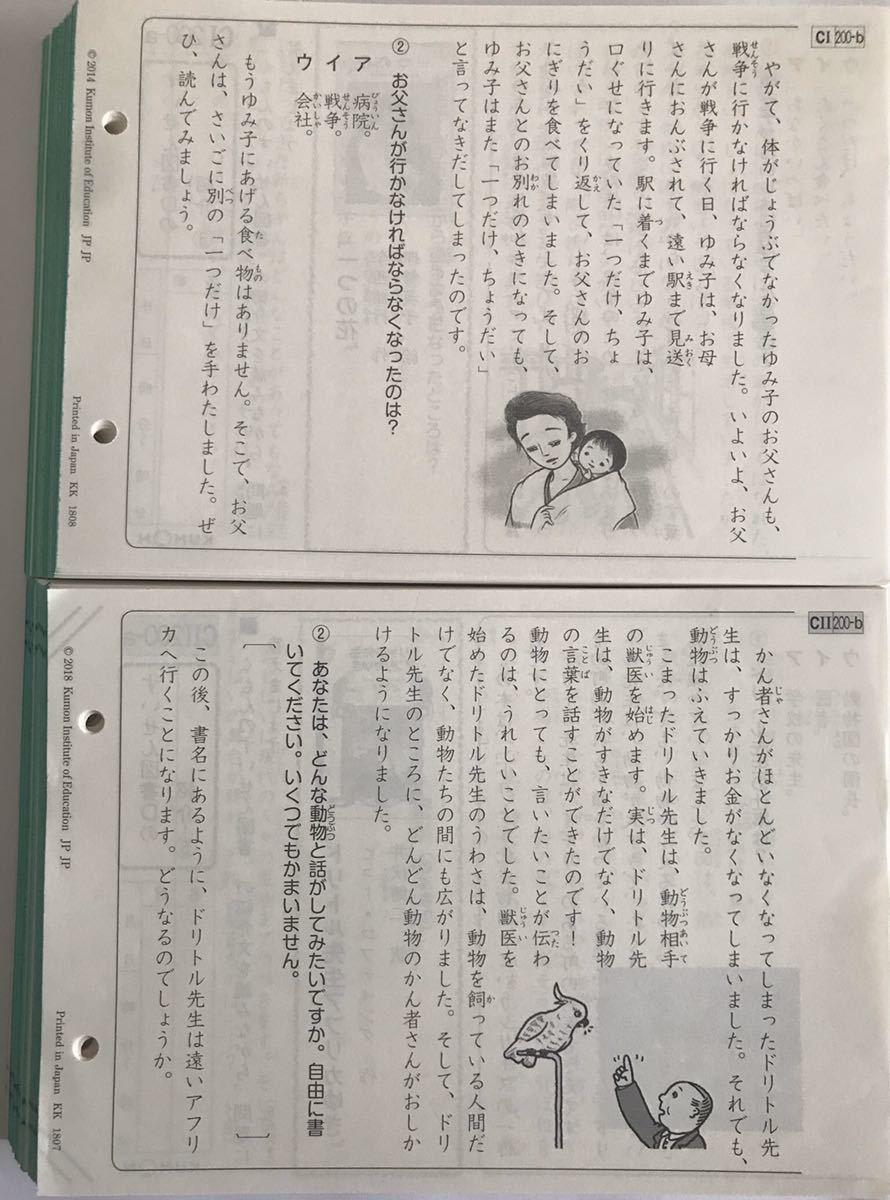 CI 200-b
やがて、体がじょうぶでなかったゆみ子のお父さんも、
戦争に行かなければならなくなりました。いよいよ、お父
さんが戦争に行く日、ゆみ子は、お母
さんにおんぶされて、遠い駅まで見送
りに行きます。駅に着くまでゆみ子は、
口ぐせになっていた「一つだけ、ちょ
うだい」をくり返して、お父さんのお
にぎりを食べてしまいました。そして、
お父さんとのお別れのときになっても、
ゆみ子はまた「一つだけ、ちょうだい」
と言ってなきだしてしまったのです。
② お父さんが行かなければならなくなったのは?
ア 病院。
イ 戦争。
ウ 会社。
もうゆみ子にあげる食べ物はありません。そこで、お父
さんは、さいごに別の「一つだけ」を手わたしました。ぜ
ひ、読んでみましょう。
© 2014 Kumon Institute of Education JP JP
Printed in Japan KK 1808
CII 200-b
かん者さんがほとんどいなくなってしまったドリトル先
生は、すっかりお金がなくなってしまいました。それでも、
動物はふえていきました。
こまったドリトル先生は、動物相手
の獣医を始めます。実は、ドリトル先
生は、動物がすきなだけでなく、動物
の言葉を話すことができたのです!
動物にとっても、言いたいことが伝わ
るのは、うれしいことでした。獣医を
始めたドリトル先生のうわさは、動物を飼っている人間だ
けでなく、動物たちの間にも広がりました。そして、ドリ
トル先生のところに、どんどん動物のかん者さんがおしか
けるようになりました。
② あなたは、どんな動物と話がしてみたいですか。自由に書
いてください。いくつでもかまいません。
〔 〕
この後、書名にあるように、ドリトル先生は遠いアフリ
カへ行くことになります。どうなるのでしょうか。
© 2018 Kumon Institute of Education JP JP
Printed in Japan KK 1807